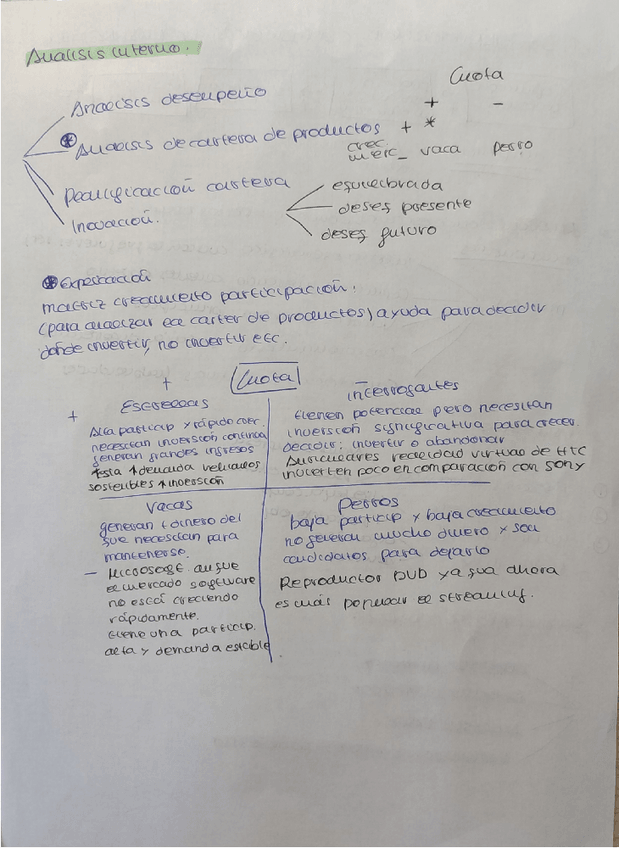 Analisis interno.
Cuota
Analisis desempeño
+ -
* Analisis de cartera de productos + *
crec
merc - vaca perro
Planificación cartera
equilibrada
Inovación.
deseq presente
deseq futuro
* Explicación
matriz crecimiento participación:
(para analizar la carter de productos) ayuda para decidir
dónde invertir, no invertir etc.
+ Cuota
+ Estrellas
Alta particip y rápido cer.
necesitan inversión continua
generan grandes ingresos
Tesla ↑ demanda vehículos
sostenibles ↑ inversión
incerrogantes
tienen potencial pero necesitan
inversión significativa para crecer.
decidir: invertir o abandonar
Auriculares realidad virtual de HTC
invierten poco en comparación con Sony
Vacas
generan + dinero del
que necesitan para
mantenerse.
- Microsoft aunque
el mercado software
no está creciendo
rápidamente.
tiene una particip.
alta y demanda estable.
Perros
baja particip y baja crecimiento
no generan mucho dinero y son
candidatos para dejarlo
Reproductor DVD ya que ahora
es más popular el streaming.